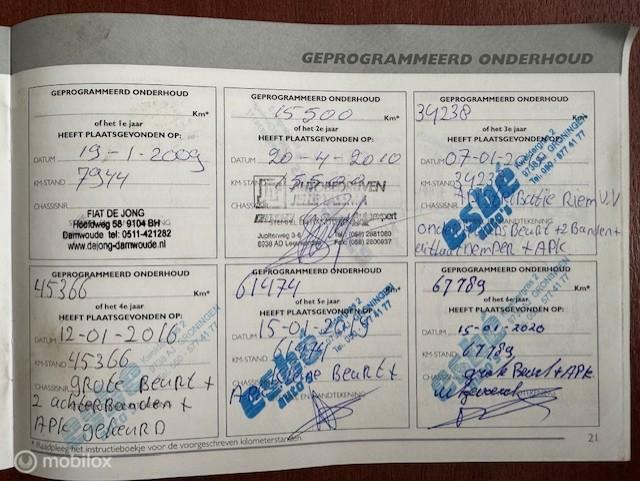 GEPROGRAMMEERD ONDERHOUD
GEPROGRAMMEERD ONDERHOUD
Km*
of het 1e jaar
HEEFT PLAATSGEVONDEN OP:
DATUM 19-1-2009
KM-STAND 7944
CHASSISNR.
FIAT DE JONG
Hoofdweg 58 9104 BH
Damwoude tel: 0511-421282
www.dejong-damwoude.nl
GEPROGRAMMEERD ONDERHOUD
15500 Km*
of het 2e jaar
HEEFT PLAATSGEVONDEN OP:
DATUM 20-4-2010
KM-STAND 15500
Jupiterweg 3-6
8938 AD
GEPROGRAMMEERD ONDERHOUD
34238
of het 3e jaar
HEEFT PLAATSGEVONDEN OP:
DATUM 07-01-2
KM-STAND
CHASSISNR.
Riem V.V
Beurt + 2 Banden +
+ APK
esbe
auto's
GRONINGEN
577 41 77
GEPROGRAMMEERD ONDERHOUD
45366 Km*
of het 4e jaar
HEEFT PLAATSGEVONDEN OP:
DATUM 12-01-2016
KM-STAND 45366
CHASSISNR. grote Beurt +
2 achterBanden +
APK gekeurD
GEPROGRAMMEERD ONDERHOUD
61474 Km*
of het 5e jaar
HEEFT PLAATSGEVONDEN OP:
DATUM 15-01-2019
KM-STAND 61474
Beurt +
esbe
auto's
GEPROGRAMMEERD ONDERHOUD
67789 Km*
of het 6e jaar
HEEFT PLAATSGEVONDEN OP:
DATUM 15-01-2020
KM-STAND 67789
CHASSISNR. grote Beurt + APK
esbe
auto's
* Raadpleeg het instructieboekje voor de voorgeschreven kilometerstanden.
21
mobilox